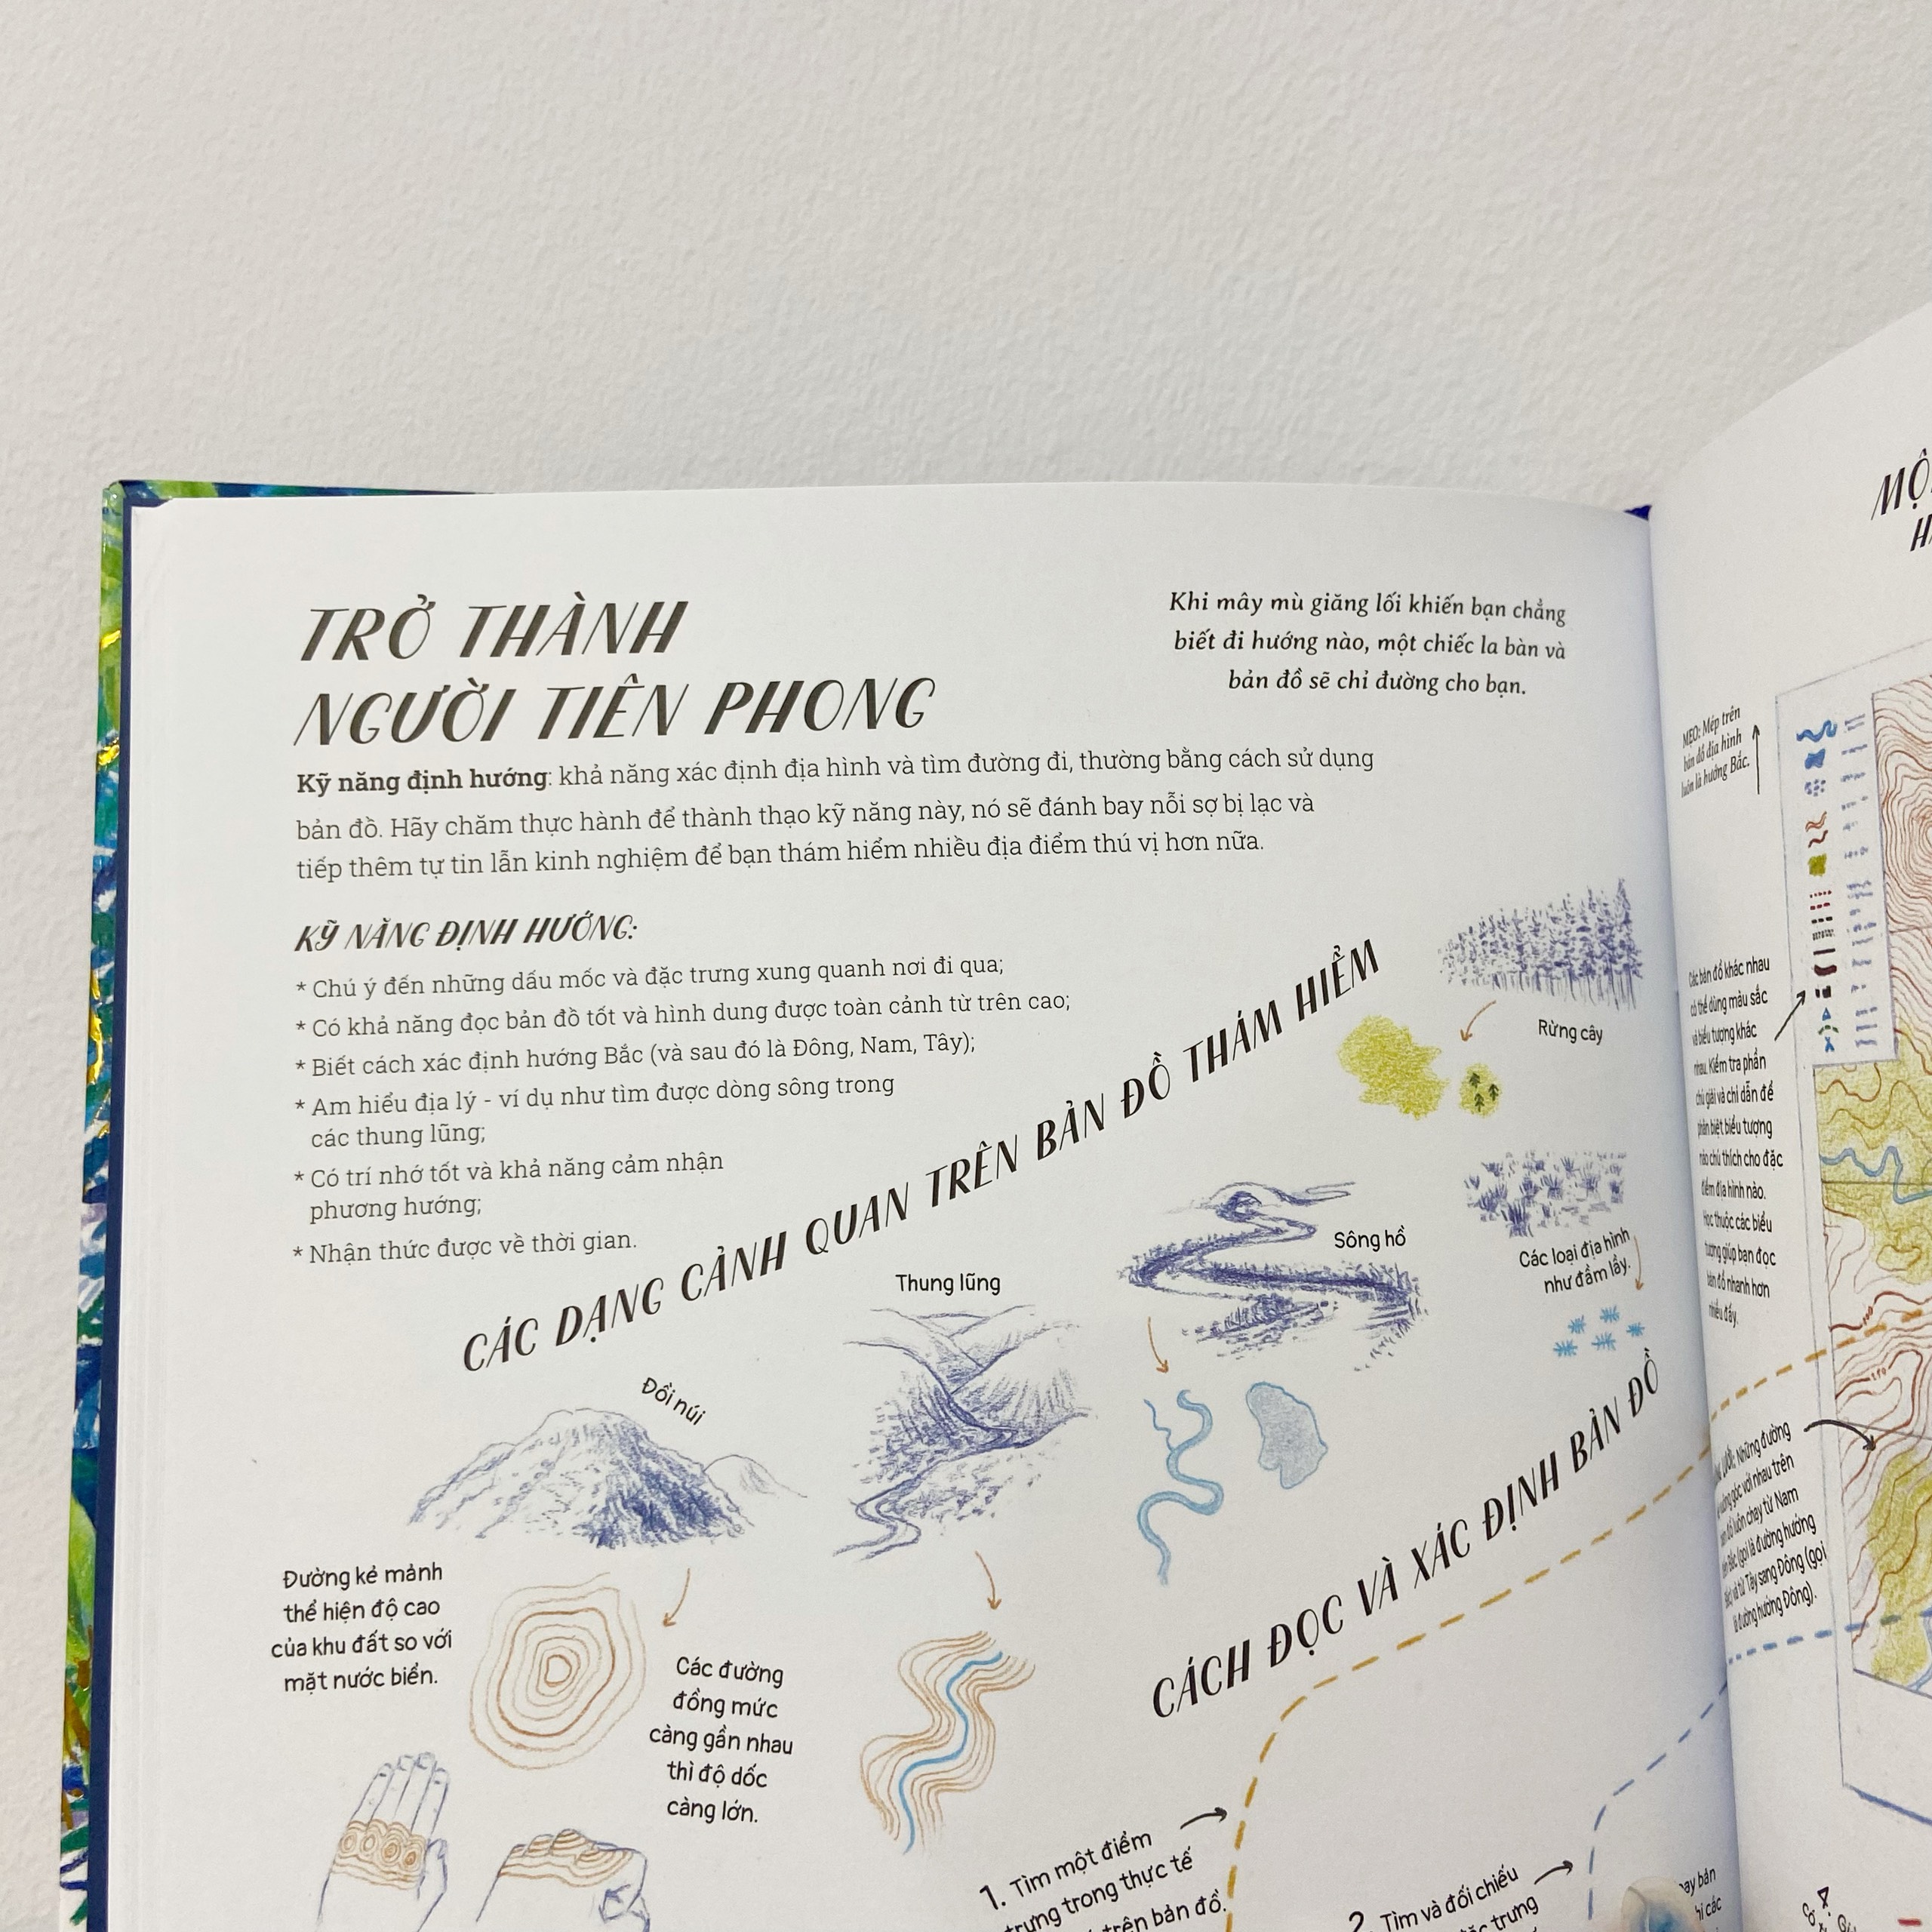 TRỞ THÀNH
NGƯỜI TIÊN PHONG
Khi mây mù giăng lối khiến bạn chẳng
biết đi hướng nào, một chiếc la bàn và
bản đồ sẽ chỉ đường cho bạn.
Kỹ năng định hướng: khả năng xác định địa hình và tìm đường đi, thường bằng cách sử dụng
bản đồ. Hãy chăm thực hành để thành thạo kỹ năng này, nó sẽ đánh bay nỗi sợ bị lạc và
tiếp thêm tự tin lẫn kinh nghiệm để bạn thám hiểm nhiều địa điểm thú vị hơn nữa.
KỸ NĂNG ĐỊNH HƯỚNG:
* Chú ý đến những dấu mốc và đặc trưng xung quanh nơi đi qua;
* Có khả năng đọc bản đồ tốt và hình dung được toàn cảnh từ trên cao;
* Biết cách xác định hướng Bắc (và sau đó là Đông, Nam, Tây);
* Am hiểu địa lý - ví dụ như tìm được dòng sông trong
các thung lũng;
* Có trí nhớ tốt và khả năng cảm nhận
phương hướng;
* Nhận thức được về thời gian.
CÁC DẠNG CẢNH QUAN TRÊN BẢN ĐỒ THÁM HIỂM
Rừng cây
Các loại địa hình
như đầm lầy.
Sông hồ
Thung lũng
Đồi núi
Đường kẻ mảnh
thể hiện độ cao
của khu đất so với
mặt nước biển.
Các đường
đồng mức
càng gần nhau
thì độ dốc
càng lớn.
CÁCH ĐỌC VÀ XÁC ĐỊNH BẢN ĐỒ
1. Tìm một điểm
trưng trong thực tế
trên bản đồ.
2. Tìm và đối chiếu
trưng
MẸO: Mép trên
bản đồ địa hình
luôn là hướng Bắc.
Các bản đồ khác nhau
có thể dùng màu sắc
và biểu tượng khác
nhau. Kiểm tra phần
chú giải và chỉ dẫn để
phân biệt biểu tượng
nào chú thích cho đặc
điểm địa hình nào.
Học thuộc các biểu
tượng giúp bạn đọc
bản đồ nhanh hơn
nhiều đấy.
Những đường
vuông góc với nhau trên
bản đồ luôn chạy từ Nam
đến Bắc (gọi là đường hướng
Bắc) và từ Tây sang Đông (gọi
là đường hướng Đông).
bản
các